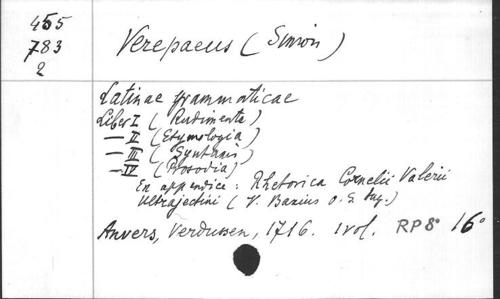 455
783
2
Verepaeus (Simon)
Latinae grammaticae
Liber I (Rudimenta)
— II (Etymologia)
— III (Syntaxis)
— IV (Prosodia)
En appendice : Rhetorica Cornelii Valerii
Ultrajectini (V. Baxius O. S. Aug.)
Anvers, Verdussen, 1716. 1 vol. RP 8° 16°